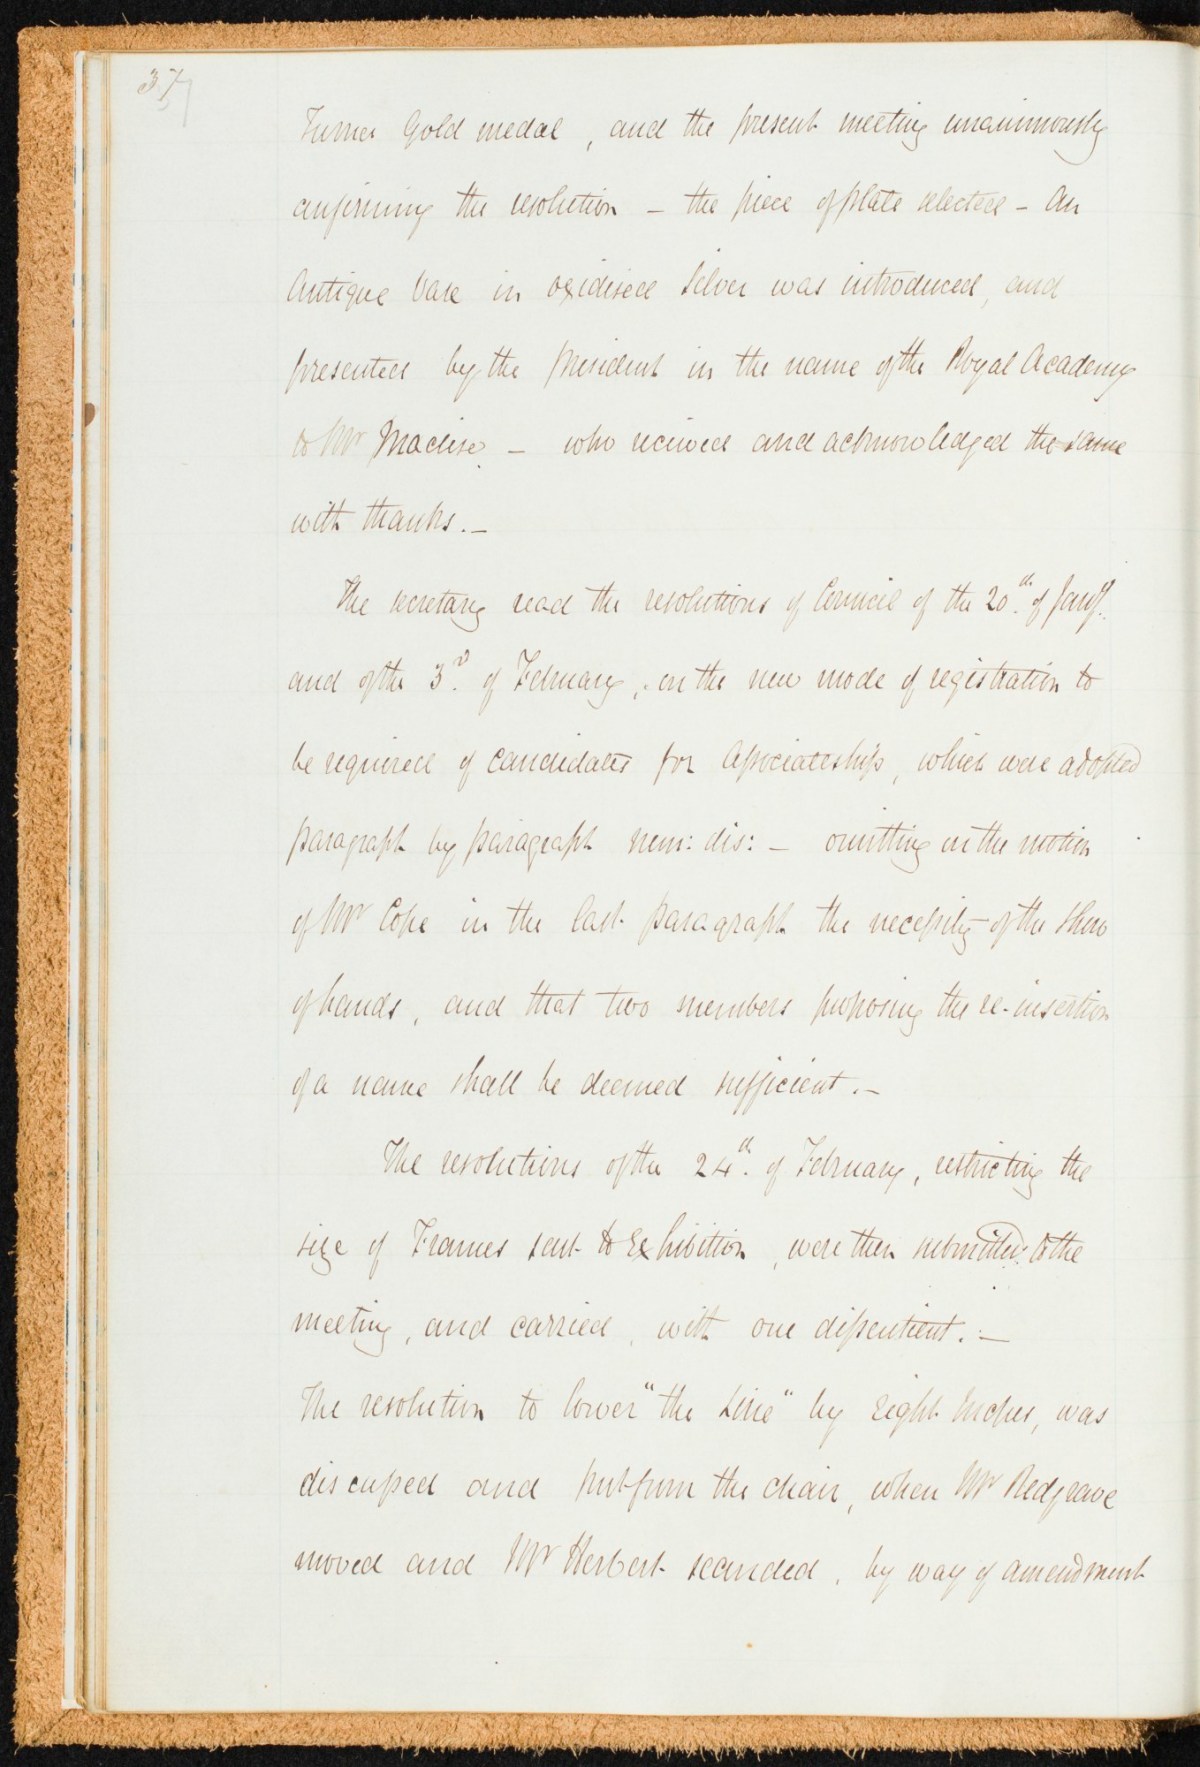 37
Turner Gold medal, and the present meeting unanimously
confirming the resolution – the piece of plate selected – An
Antique Vase in oxidised Silver was introduced, and
presented by the President in the name of the Royal Academy
to Mr Maclise – who received and acknowledged the same
with thanks. –
The secretary read the resolutions of Council of the 20th. of Jany.
and of the 3rd. of February, on the new mode of registration to
be required of candidates for Associateship, which were adopted
paragraph by paragraph nem: dis: – omitting on the motion
of Mr Cope in the last paragraph the necessity of the show
of hands, and that two members proposing the re-insertion
of a name shall be deemed sufficient. –
The resolutions of the 24th. of February, restricting the
size of Frames sent to Exhibition, were then submitted to the
meeting, and carried, with one dissentient. –
The resolution to lower "the Line" by Eight Inches, was
discussed and put from the chair, when Mr Redgrave
moved and Mr Herbert seconded, by way of amendment